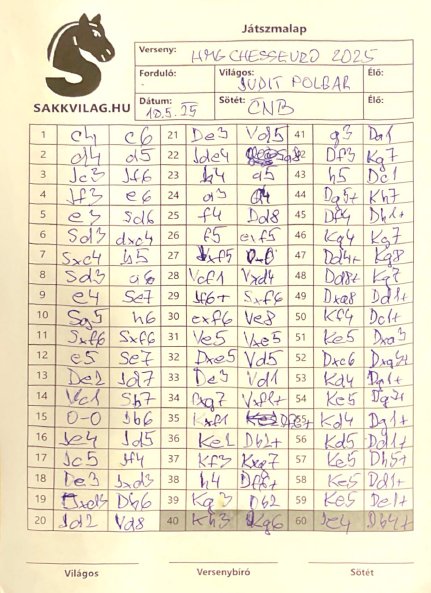 Játszmalap
Verseny: HMG CHESSEURO 2025
Forduló: Világos: JUDIT POLGAR Élő:
Dátum: 18.5.25 Sötét: CNB Élő:
SAKKVILAG.HU
1 c4 c6 21 De3 Vd5 41 g3 Da1
2 d4 d5 22 Jde4 42 Df3 Kg7
3 Jc3 Jf6 23 h4 a5 43 h5 Dc1
4 Jf3 e6 24 a3 a4 44 Dg5+ Kh7
5 e3 Sd6 25 f4 Dd8 45 Df4 Dh1+
6 Sd3 dxc4 26 f5 exf5 46 Kg4 Kg7
7 Sxc4 b5 27 Jxf5 0-0 47 Dd4+ Kg8
8 Sd3 a6 28 Vcf1 Vxd4 48 Dd8+ Kg7
9 e4 Se7 29 Jf6+ Sxf6 49 Dxa8 Dd1+
10 Sg5 h6 30 exf6 Ve8 50 Kf4 Dc1+
11 Sxf6 Sxf6 31 Ve5 Vxe5 51 Ke5 Dxa3
12 e5 Se7 32 Dxe5 Vd5 52 Dxc6 Dxg3+
13 De2 Jd7 33 De3 Vd1 53 Kd4 Dg1+
14 Vc1 Sb7 34 Dxg7 Vxf1+ 54 Ke5 Dg3+
15 0-0 Jb6 35 Kxf1 55 Kd4 Dg1+
16 Je4 Jd5 36 Ke1 Db2+ 56 Kd5 Dd1+
17 Jc5 Jf4 37 Kf3 Kxg7 57 Ke5 Dh5+
18 De3 Jxd3 38 h4 Df8+ 58 Ke5 Dd1+
19 Jxd3 Db6 39 Kg3 Db2 59 Ke5 De1+
20 Jd2 Vd8 40 Kh3 Kg6 60 Je4 Dh4+
Világos Versenybíró Sötét